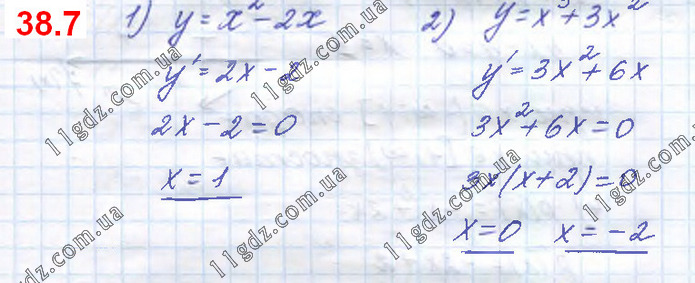 38.7
1) y = x² - 2x
y' = 2x - 2
2x - 2 = 0
x = 1
2) y = x³ + 3x²
y' = 3x² + 6x
3x² + 6x = 0
3x(x + 2) = 0
x = 0 x = -2
11gdz.com.ua
11gdz.com.ua
11gdz.com.ua
11gdz.com.ua
11gdz.com.ua
11gdz.com.ua
11gdz.com.ua